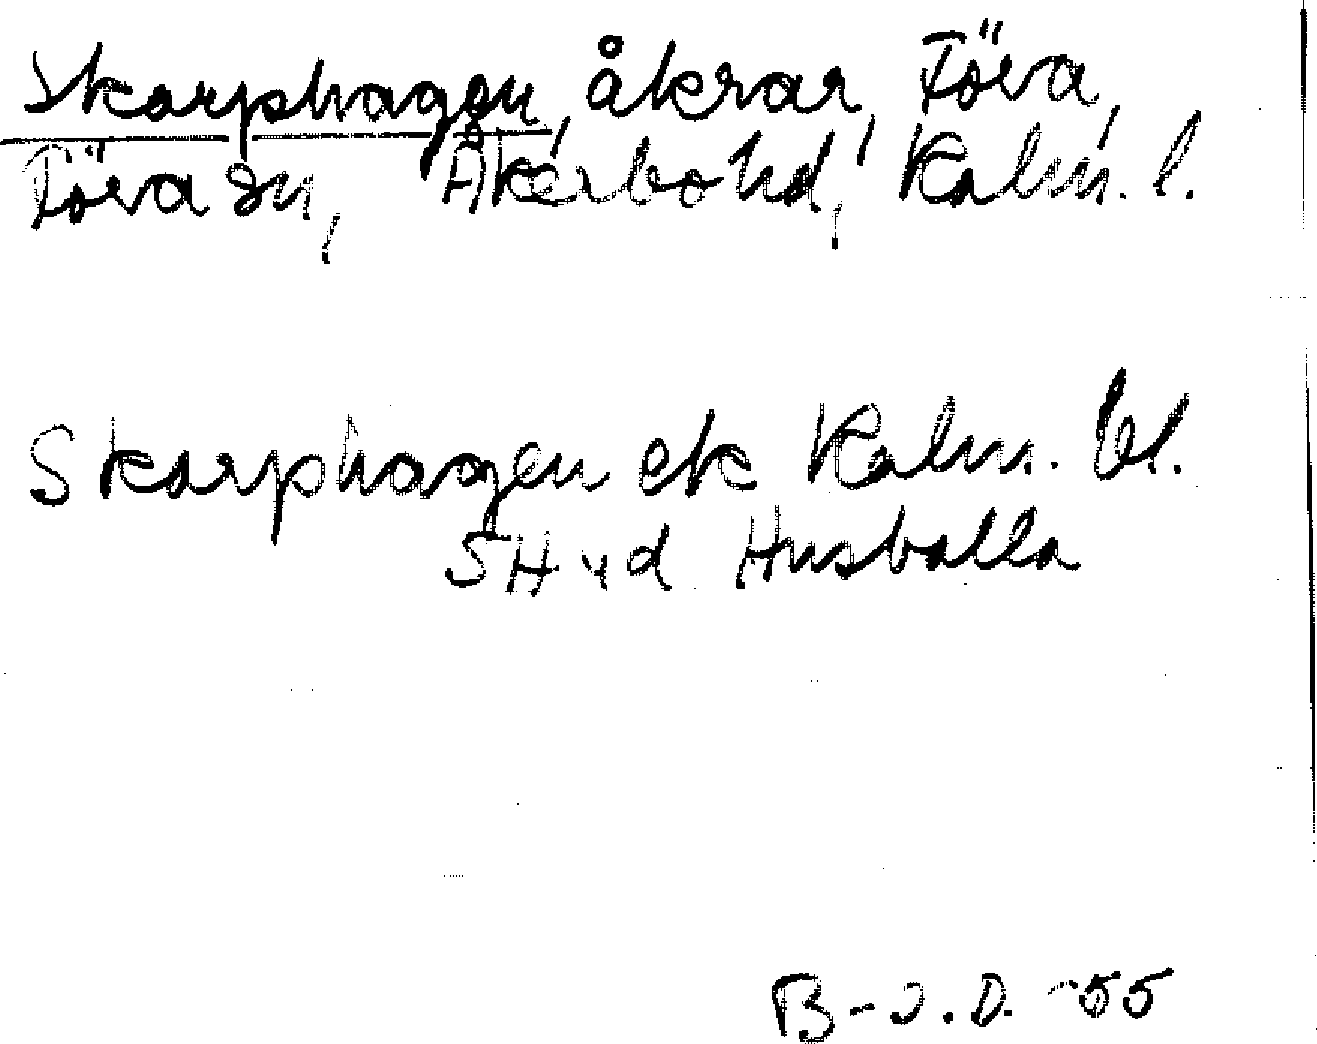 Skarphagen, åkrar, Föra,
Föra sn, Åkerbo hd, Kalm. l.
Skarphagen ek Kalm. bl.
SH vd Husvalla
B-J.D. -55